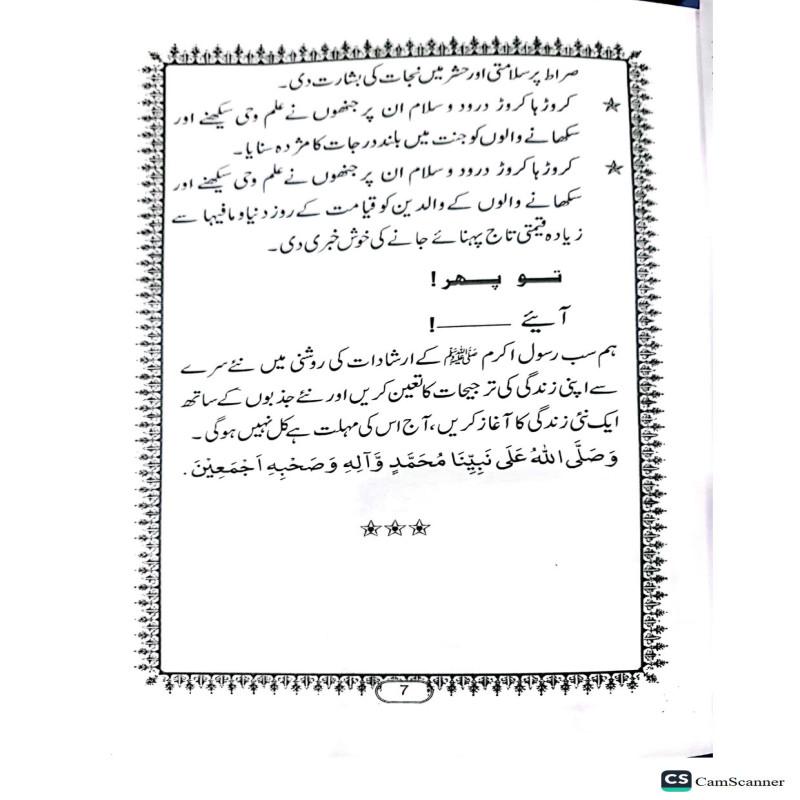 صراط پر سلامتی اور حشر میں نجات کی بشارت دی۔
کروڑ ہا کروڑ درود و سلام ان پر جنھوں نے علم وحی سیکھنے اور
سکھانے والوں کو جنت میں بلند درجات کا مژدہ سنایا۔
کروڑ ہا کروڑ درود و سلام ان پر جنھوں نے علم وحی سیکھنے اور
سکھانے والوں کے والدین کو قیامت کے روز دنیا و مافیہا سے
زیادہ قیمتی تاج پہنائے جانے کی خوش خبری دی۔
تو پھر!
آیئے ———!
ہم سب رسول اکرم ﷺ کے ارشادات کی روشنی میں نئے سرے
سے اپنی زندگی کی ترجیحات کا تعین کریں اور نئے جذبوں کے ساتھ
ایک نئی زندگی کا آغاز کریں، آج اس کی مہلت ہے کل نہیں ہوگی۔
وَصَلَّى اللهُ عَلَى نَبِيِّنَا مُحَمَّدٍ وَّآلِهِ وَصَحْبِهِ اَجْمَعِيْنَ.
7
CS CamScanner